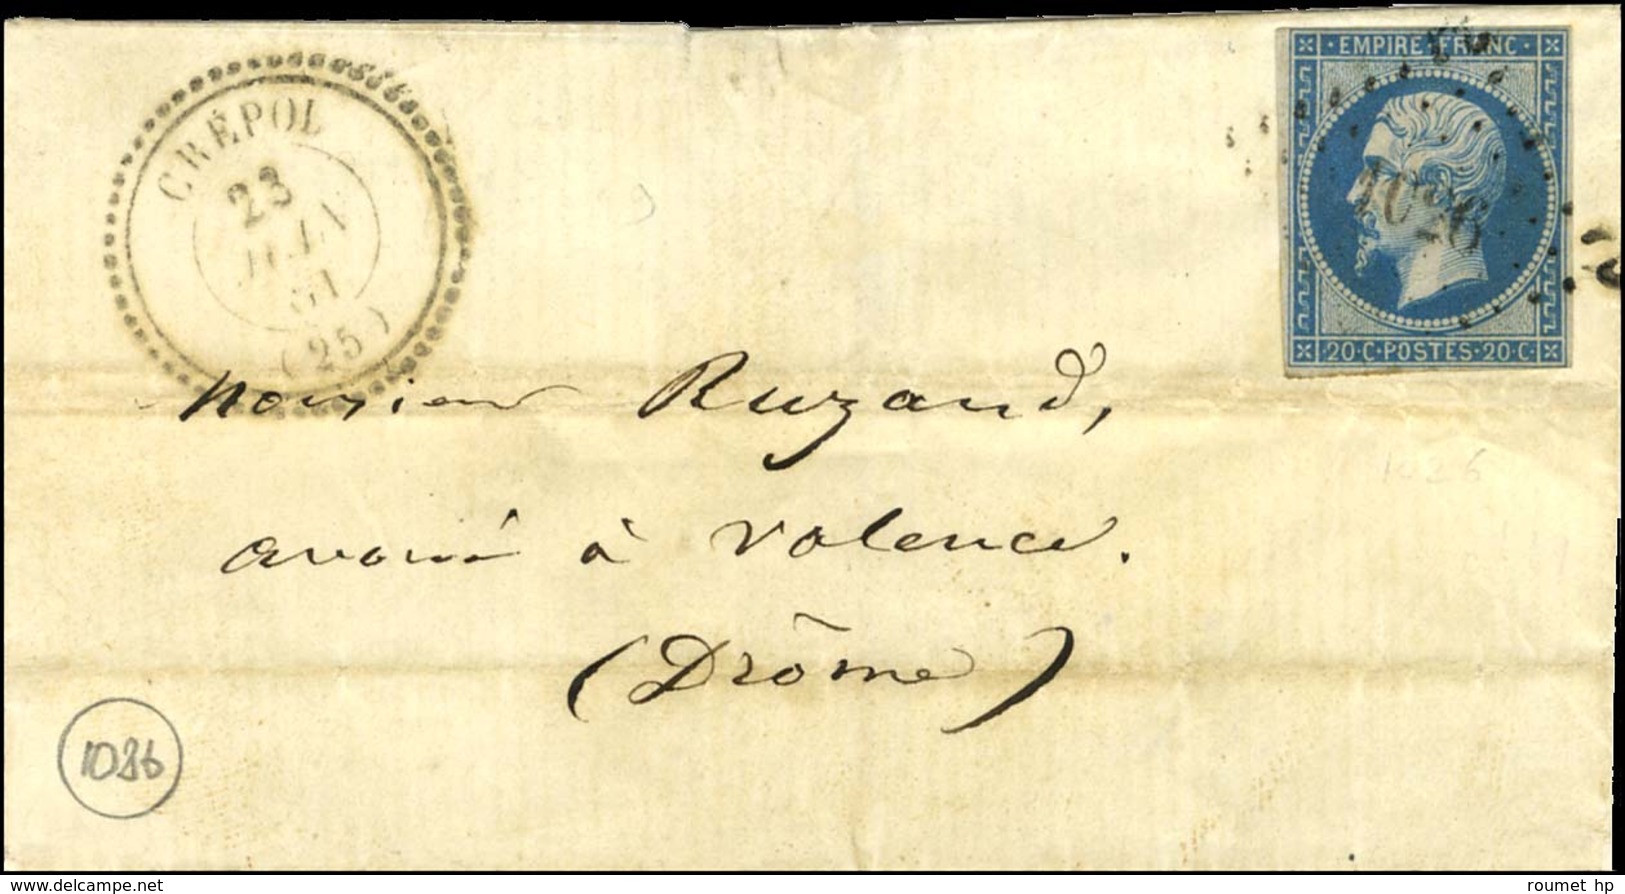 CRÉPOL
23
61
(25)
EMPIRE FRANC
1026
20·C·POSTES·20·C
Monsieur Ruzand,
avoué à Valence.
(Drôme)
1026
1026
www.delcampe.net
roumet hp